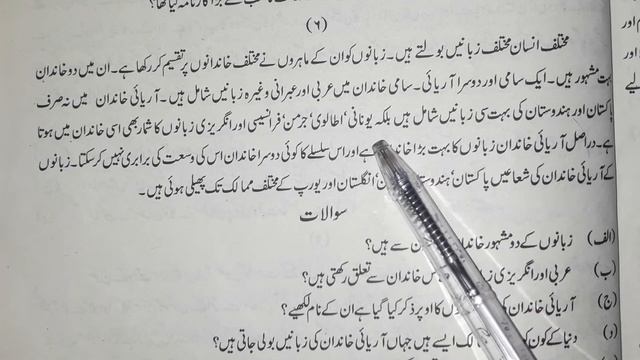 (۶)
مختلف انسان مختلف زبانیں بولتے ہیں۔ زبانوں کو ان کے ماہروں نے مختلف خاندانوں پر تقسیم کر رکھا ہے۔ ان میں دو خاندان
بہت مشہور ہیں۔ ایک سامی اور دوسرا آریائی۔ سامی خاندان میں عربی اور عبرانی وغیرہ زبانیں شامل ہیں۔ آریائی خاندان میں نہ صرف
پاکستان اور ہندوستان کی بہت سی زبانیں شامل ہیں بلکہ یونانی، اطالوی، جرمن، فرانسیسی اور انگریزی زبانوں کا شمار بھی اسی خاندان میں ہوتا
ہے۔ دراصل آریائی خاندان زبانوں کا بہت بڑا ہے اور اس سلسلے کا کوئی دوسرا خاندان اس کی وسعت کی برابری نہیں کر سکتا۔ زبانوں
کے آریائی خاندان کی شعاعیں پاکستان، انگلستان اور یورپ کے مختلف ممالک تک پھیلی ہوئی ہیں۔
سوالات
(الف) زبانوں کے دو مشہور سے ہیں؟
(ب) عربی اور انگریزی خاندان سے تعلق رکھتی ہیں؟
(ج) آریائی خاندان کا اوپر ذکر کیا گیا ہے ان کے نام لکھیے؟
(د) دنیا کے کون ایسے ہیں جہاں آریائی خاندان کی زبانیں بولی جاتی ہیں؟